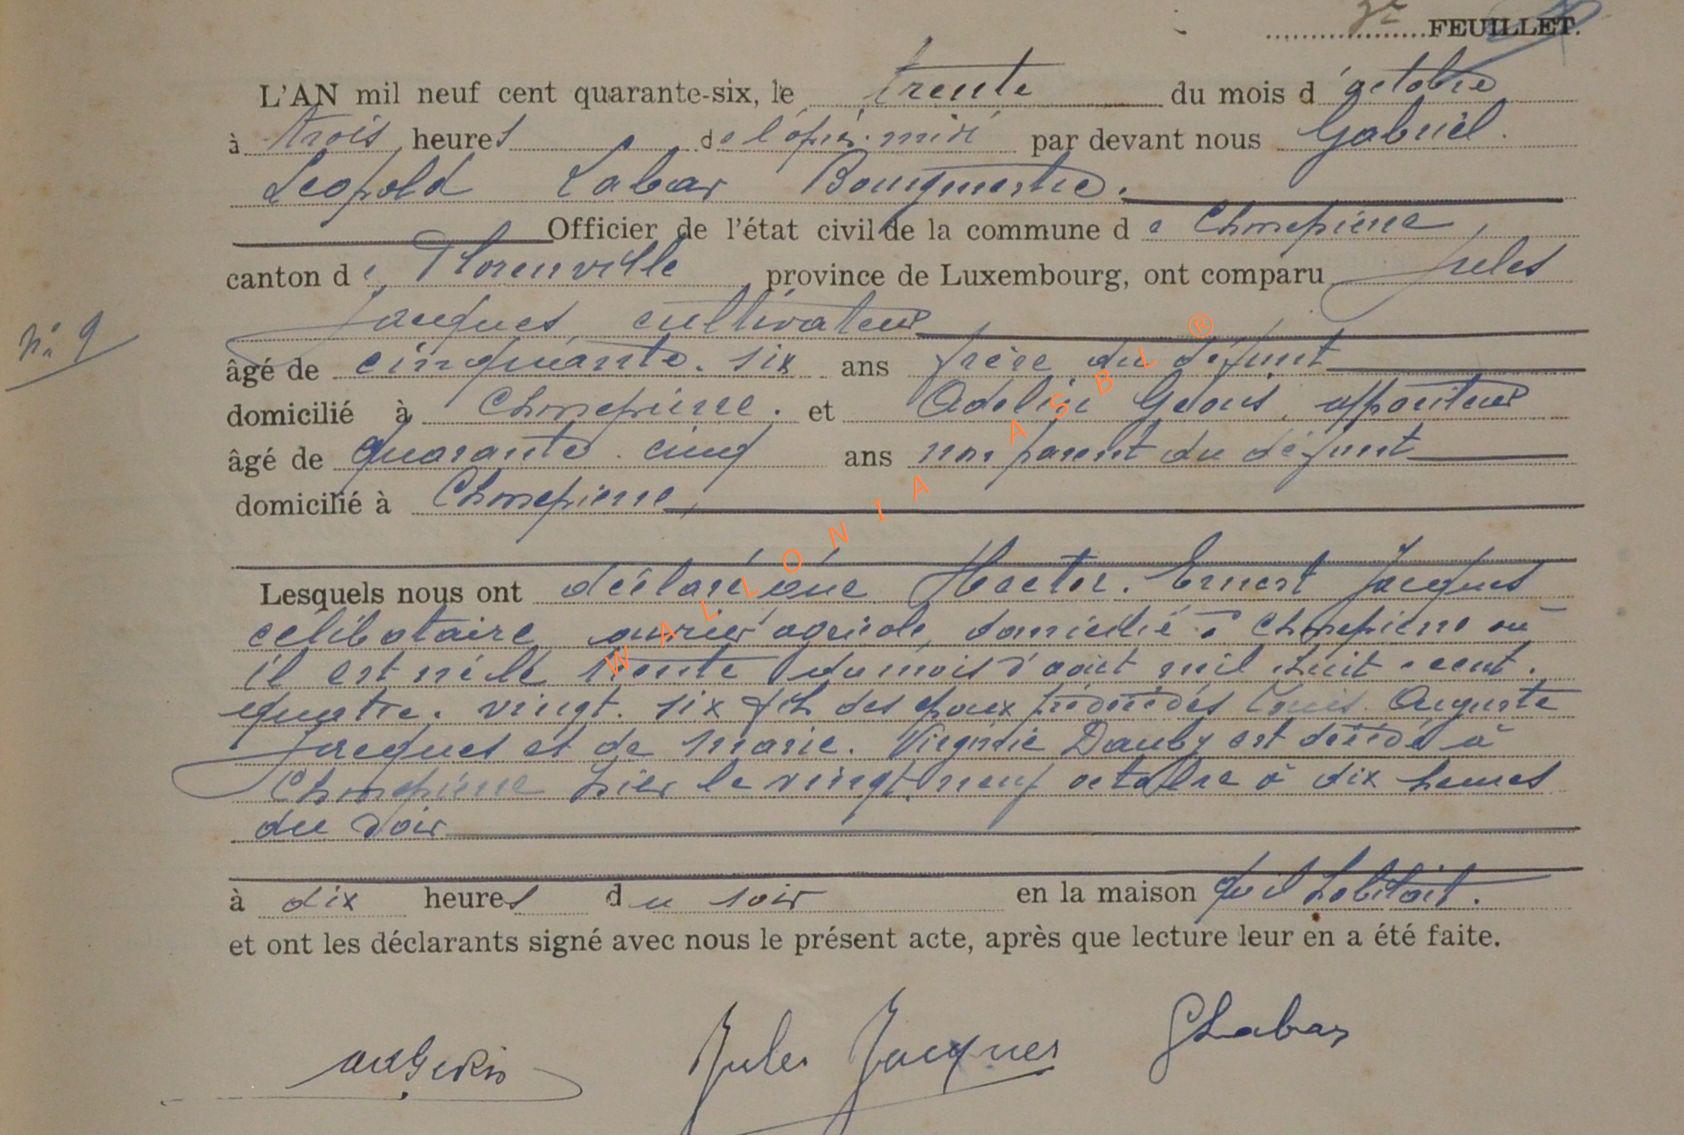 FEUILLET.
L'AN mil neuf cent quarante-six, le trente du mois d'octobre
à trois heures de l'après-midi par devant nous Gabriel
Léopold Labar Bourgmestre.
Officier de l'état civil de la commune de Chassepierre,
canton de Florenville province de Luxembourg, ont comparu Jules
Jacques cultivateur
âgé de cinquante-six ans frère du défunt
domicilié à Chassepierre. et appariteur
âgé de quarante-cinq ans non parent du défunt
domicilié à Chassepierre,
N° 9
Lesquels nous ont déclaré que Hector. Ernest Jacques
célibataire ouvrier agricole, domicilié à Chassepierre où
il est né le trente du mois d'août mil huit-cent.
quatre. vingt. six fils des époux prédécédés Louis. Auguste
Jacques et de Marie. Virginie Dauby est décédé à
Chassepierre hier le vingt-neuf octobre à dix heures
du soir
à dix heures du soir en la maison qu'il habitait.
et ont les déclarants signé avec nous le présent acte, après que lecture leur en a été faite.
Jules Jacques GLabar
WALLONIA ASBL ®